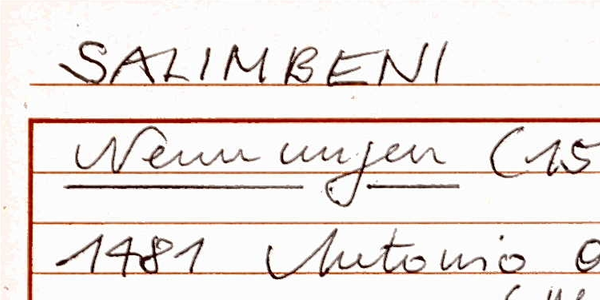 SALIMBENI
Nennungen (15
1481 Antonio